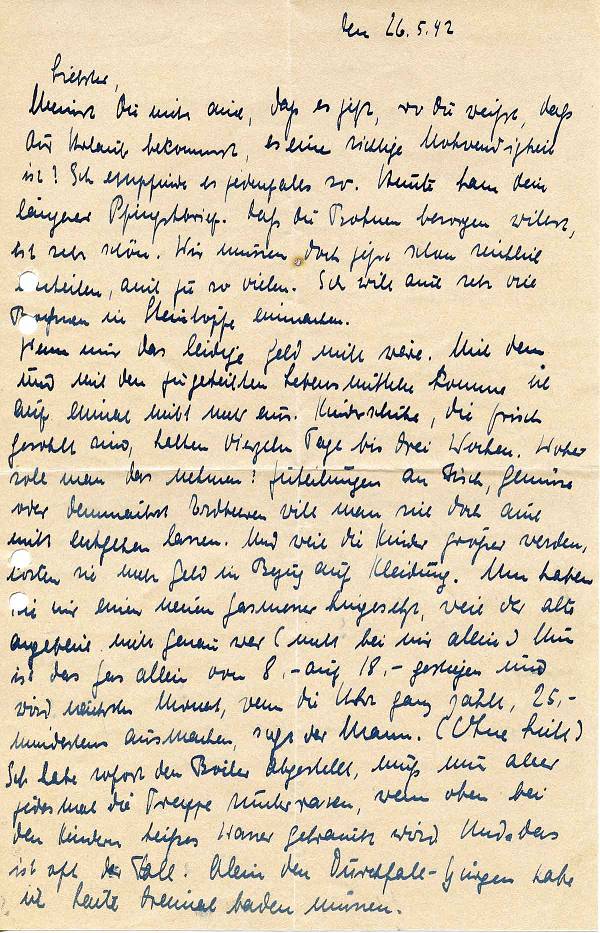 den 26.5.42
Liebster,
Meinst Du nicht auch, daß es jetzt, wo Du weißt, daß
Du Urlaub bekommst, es eine richtige Notwendigkeit
ist? Ich empfinde es jedenfalls so. Heute kam Dein
längerer Pfingstbrief. Daß Du Bohnen besorgen willst,
ist sehr schön. Wir müssen doch jetzt schon reichlich
einteilen, auch zu so vielen. Ich will auch sehr viel
Bohnen in Steintöpfe einmachen.
Wenn nur das leidige Geld nicht wäre. Mit dem
und mit den zugeteilten Lebensmitteln komme ich
auf einmal nicht mehr aus. Kinderschuhe, die frisch
gesohlt sind, halten vierzehn Tage bis drei Wochen. Woher
soll man das nehmen? Zuteilungen an Fisch, Gemüse
oder demnächst Erdbeeren will man sich doch auch
nicht entgehen lassen. Und weil die Kinder größer werden,
kosten sie mehr Geld in Bezug auf Kleidung. Nun haben
sie mir einen neuen Gasmesser hingesetzt, weil der alte
angeblich nicht genau war (nicht bei mir allein) Nun
ist das Gas allein von 8,- auf 18,- gestiegen und
wird nächsten Monat, wenn die Uhr ganz zählt, 25,-
mindestens ausmachen, sagt der Mann. (Ohne Licht)
Ich habe sofort den Boiler abgestellt, muß nun aber
jedesmal die Treppe runterrasen, wenn oben bei
den Kindern heißes Wasser gebraucht wird Und das
ist oft der Fall. Allein den Durchfall-Jürgen habe
ich heute dreimal baden müssen.